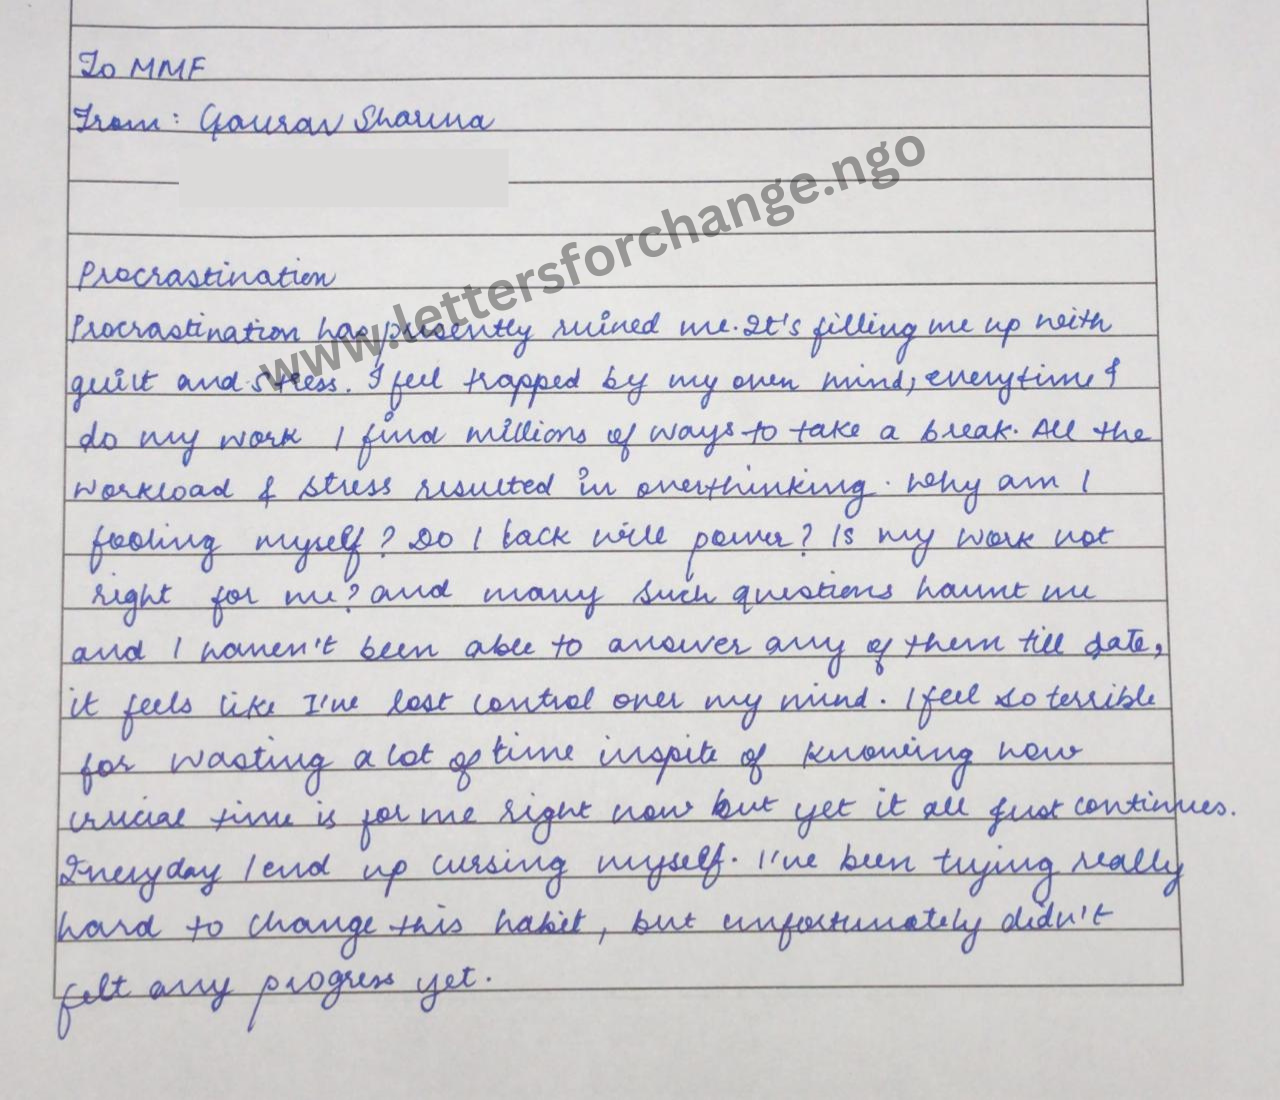 To MMF
From: Gaurav Sharma
www.lettersforchange.ngo
Procrastination
Procrastination has presently ruined me. It's filling me up with
guilt and stress. I feel trapped by my own mind, everytime I
do my work I find millions of ways to take a break. All the
workload & stress resulted in overthinking. Why am I
fooling myself? Do I lack will power? Is my work not
right for me? and many such questions haunt me
and I haven't been able to answer any of them till date,
it feels like I've lost control over my mind. I feel so terrible
for wasting a lot of time inspite of knowing how
crucial time is for me right now but yet it all just continues.
Everyday I end up cursing myself. I've been trying really
hard to change this habit, but unfortunately didn't
felt any progress yet.